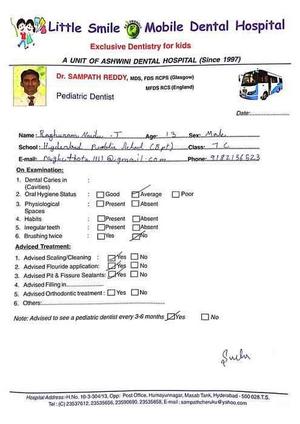 Little Smile Mobile Dental Hospital
Exclusive Dentistry for kids
A UNIT OF ASHWINI DENTAL HOSPITAL (Since 1997)
Dr. SAMPATH REDDY, MDS, FDS RCPS (Glasgow)
MFDS RCS (England)
Pediatric Dentist
Date:
Name: Raghuram Naidu .T Age: 13 Sex: Male
School: Hyderabad Public School (Bpt) Class: 7 C
E-mail: @gmail.com Phone:
On Examination:
1. Dental Caries in :
(Cavities)
2. Oral Hygiene Status : Good Average Poor
3. Physiological : Present Absent
Spaces
4. Habits : Present Absent
5. Irregular teeth : Present Absent
6. Brushing twice : Yes No
Adviced Treatment:
1. Advised Scaling/Cleaning : Yes No
2. Advised Flouride application: Yes No
3. Advised Pit & Fissure Sealants: Yes No
4. Advised Filling in
5. Advised Orthodontic treatment : Yes No
6. Others:
Note: Advised to see a pediatric dentist every 3-6 months Yes No
Hospital Address:-H.No. 10-3-304/13, Opp: Post Office, Humayunnagar, Masab Tank, Hyderabad - 500 028.T.S.
Tel: (C) 23537612, 23535656, 23590690, 23535658, E-mail : sampathcheruku@yahoo.com